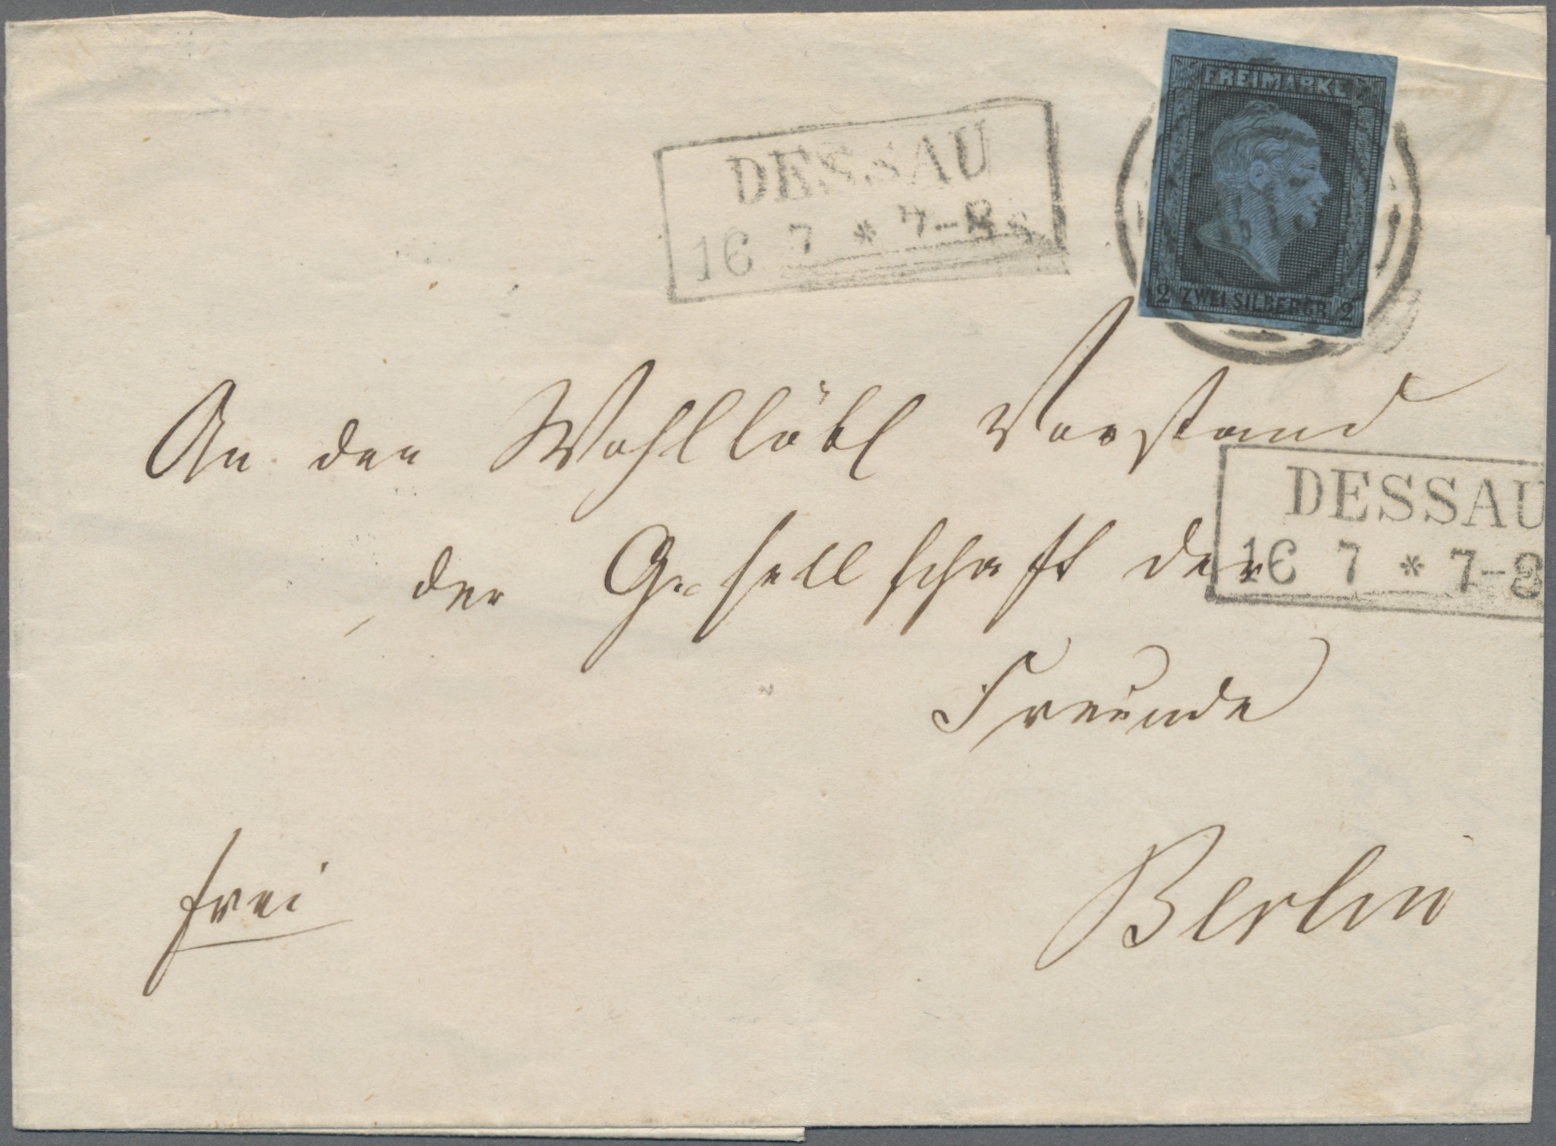 FREIMARKE
2 ZWEI SILBERGR 2
DESSAU
16 7 * 7-8
An den Wohllöbl Vorstand
DESSAU
16 7 * 7-8
der Gesellschaft der
Freunde
frei
Berlin